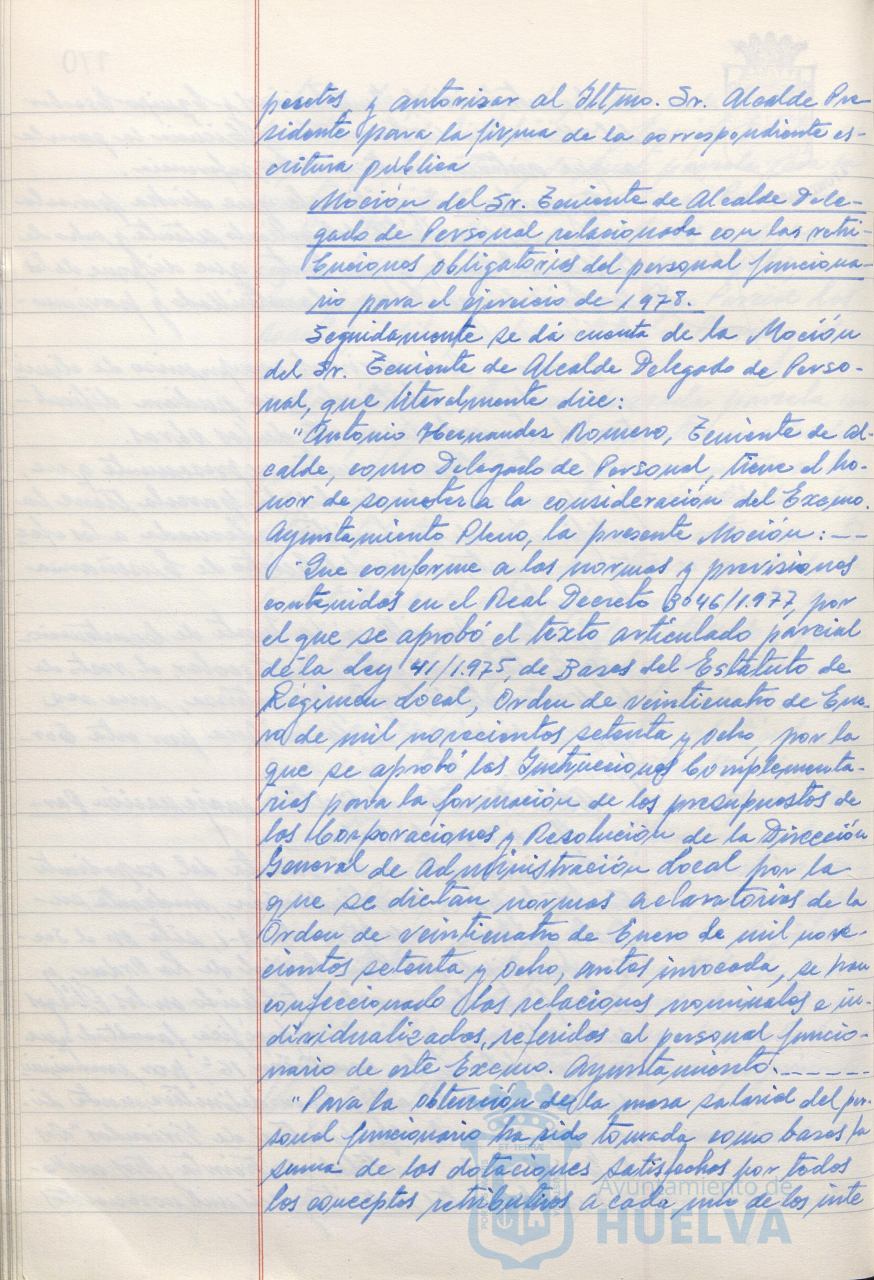 pesetas, y autorizar al Iltmo. Sr. Alcalde Pre
sidente para la firma de la correspondiente es-
critura pública
Moción del Sr. Teniente de Alcalde Dele-
gado de Personal relacionada con las retri-
buciones obligatorias del personal funciona-
rio para el ejercicio de 1978.
Seguidamente se dá cuenta de la Moción
del Sr. Teniente de Alcalde Delegado de Perso-
nal, que literalmente dice:
"Antonio Hernandez Romero, Teniente de Al-
calde, como Delegado de Personal, tiene el ho-
nor de someter a la consideración del Excmo.
Ayuntamiento Pleno, la presente Moción:---
"Que conforme a las normas y previsiones
contenidas en el Real Decreto 3046/1.977, por
el que se aprobó el texto articulado parcial
de la Ley 41/1.975, de Bases del Estatuto de
Régimen Local, Orden de veinticuatro de Ene-
ro de mil novecientos setenta y ocho, por la
que se aprobó las Instrucciones Complementa-
rias para la formación de los presupuestos de
las Corporaciones y Resolución de la Dirección
General de Administración Local por la
que se dictan normas aclaratorias de la
Orden de veinticuatro de Enero de mil nove-
cientos setenta y ocho, antes invocada, se han
confeccionado las relaciones nominales e in-
dividualizadas, referidas al personal funcio-
nario de este Excmo. Ayuntamiento.------
"Para la obtención de la masa salarial del per-
sonal funcionario ha sido tomada como bases la
suma de las dotaciones satisfechas por todos
los conceptos retributivos a cada uno de los inte
Ayuntamiento de
HUELVA